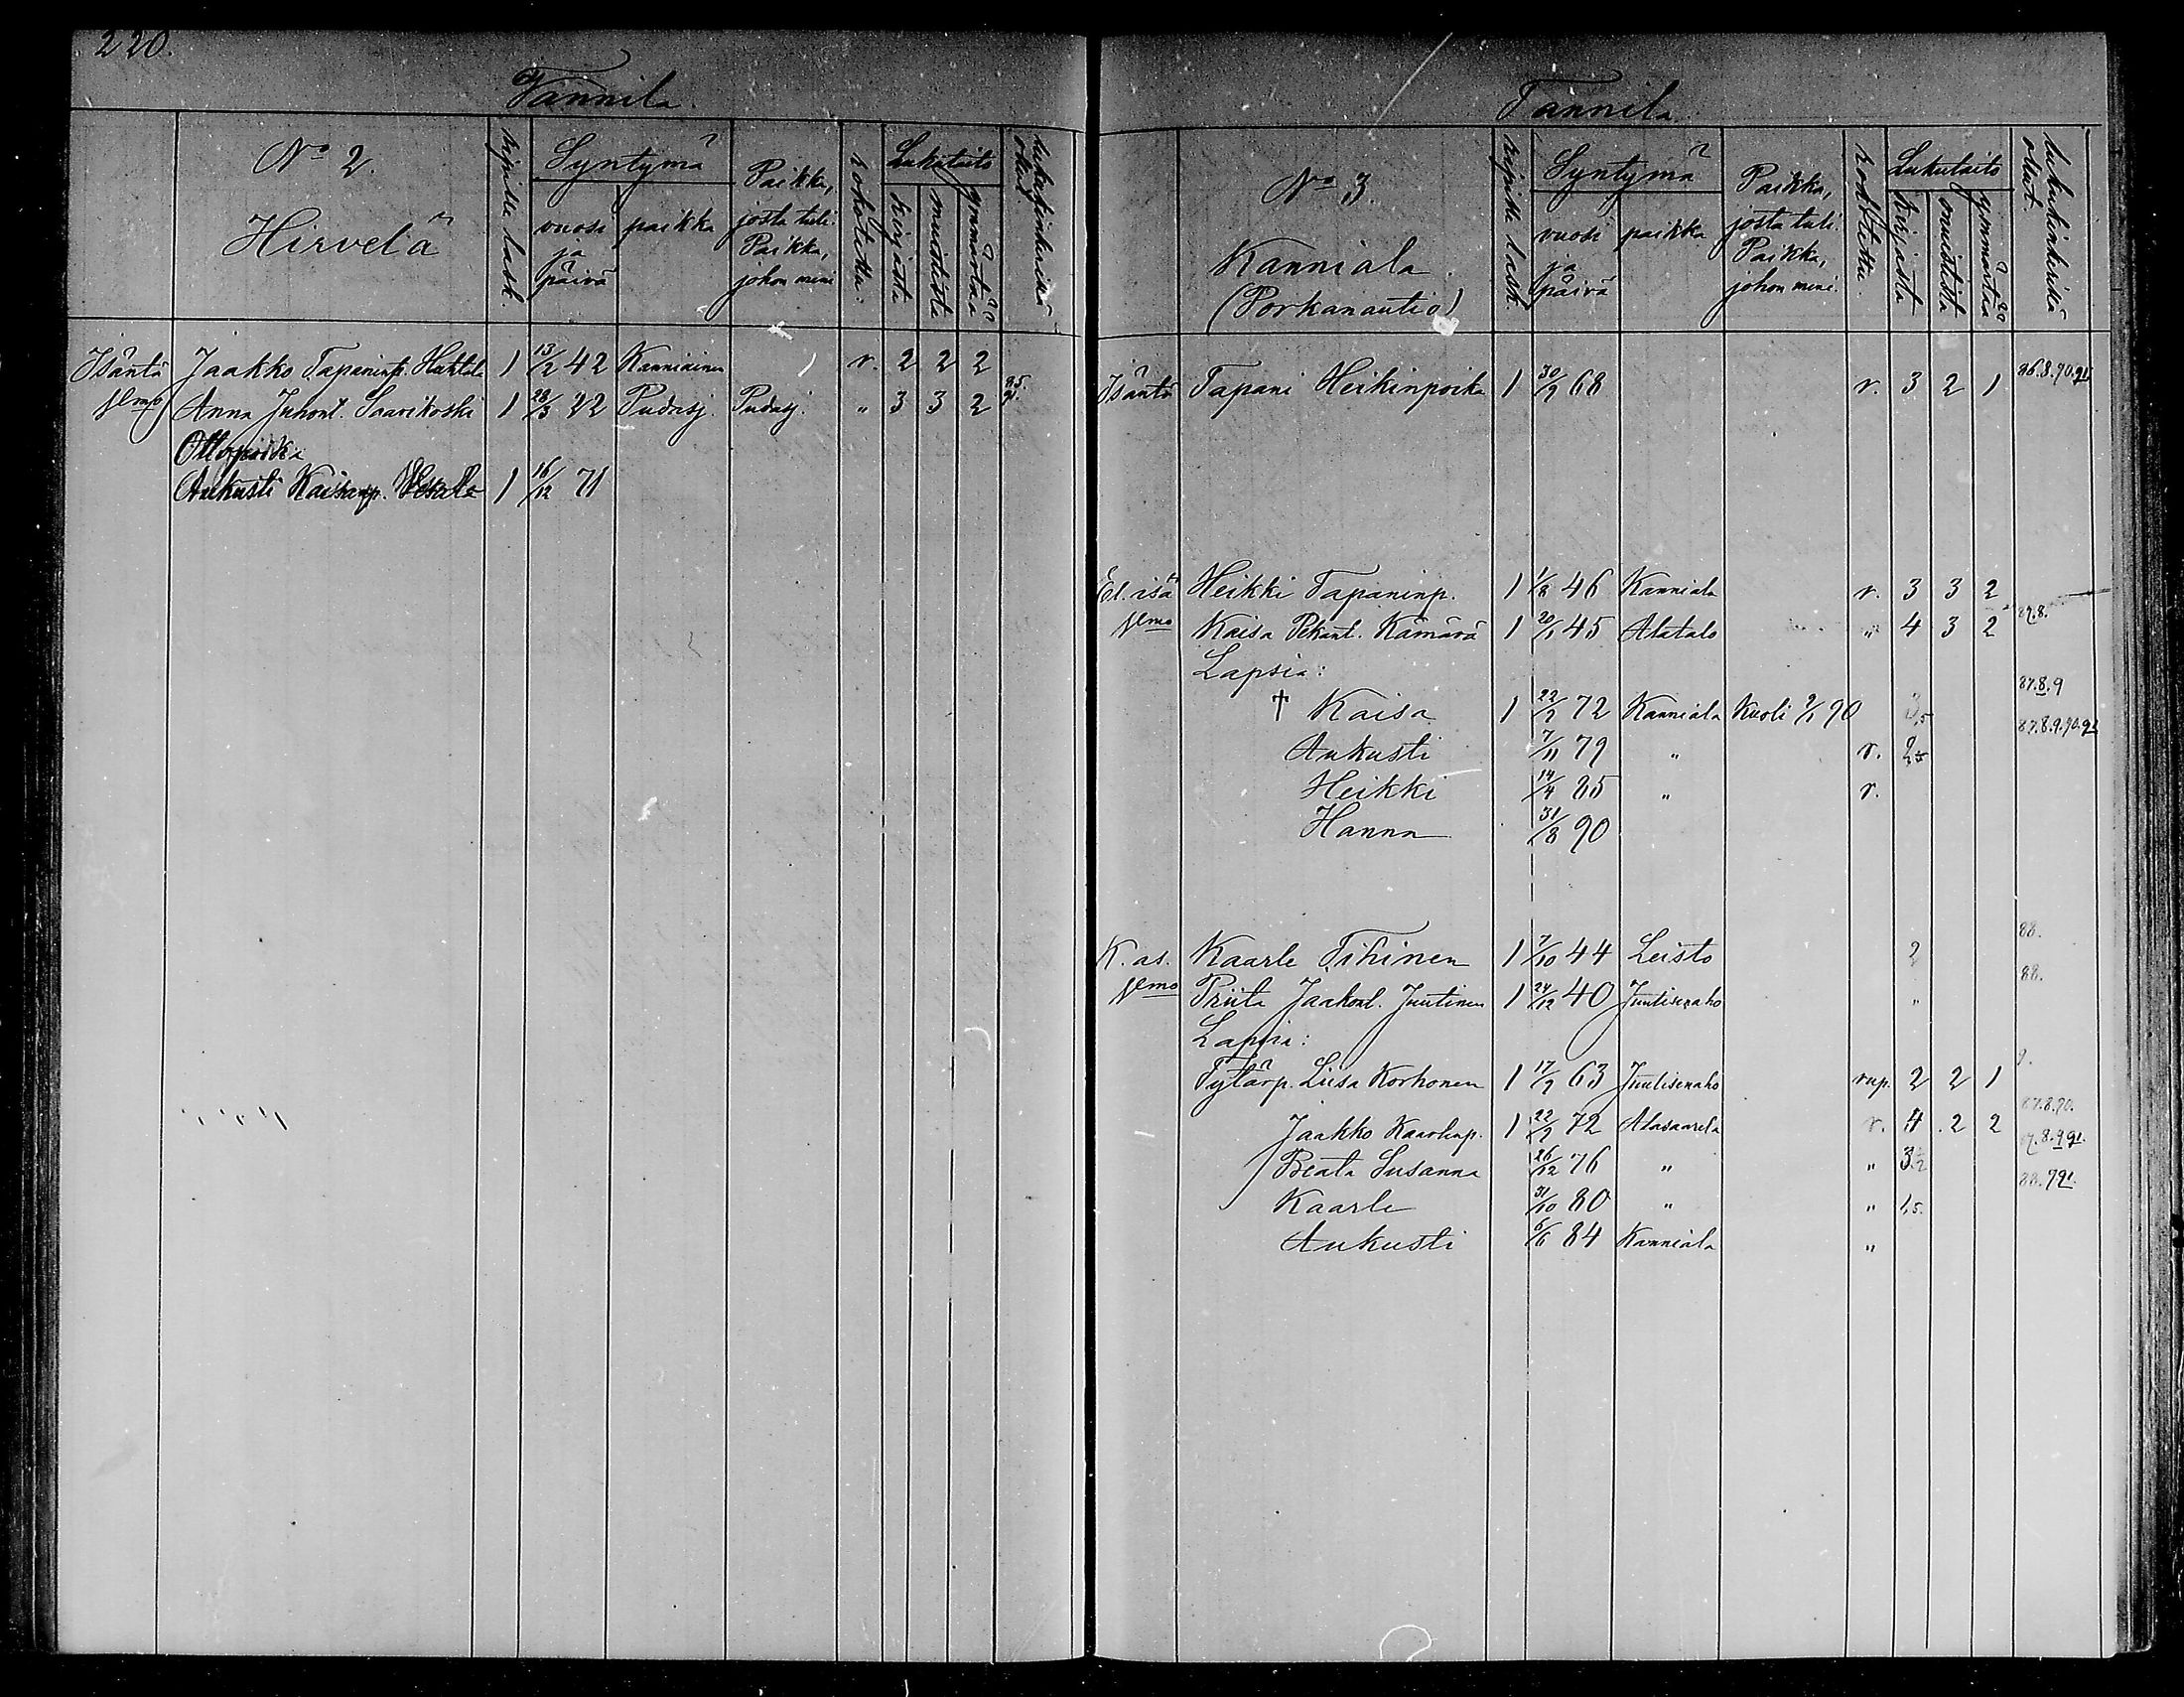 220.
Tannila.
No 2.
Hirvelä
ripille lask.
Syntymä
vuosi ja päivä
paikka
Paikka, josta tuli.
Paikka, johon meni
rokotettu.
Lukutaito
kirjasta
muistista
ymmärtää
lukukinkerissä ollut.
Isäntä Jaakko Tapaninp. Huttula 1 13/2 42 Kanniainen r. 2 2 2
Anna Juhont. Saarikoski 1 28/3 22 Pudasj. Pudasj. " 3 3 2
Ottopoika
Aukusti Kaisanp. 1 16/12 71
Tannila.
No 3.
Kanniala.
(Porkanautio)
ripille lask.
Syntymä
vuosi ja päivä
paikka
Paikka, josta tuli.
Paikka, johon meni.
rokotettu
Lukutaito
kirjasta
muistista
ymmärtää
lukukinkerissä ollut.
Isäntä Tapani Heikinpoika 1 30/9 68 r. 3 2 1 86.8.90.91
El. isä Heikki Tapaninp. 1 1/8 46 Kanniala r. 3 3 2
Kaisa Pekant. Kämärä 1 20/1 45 Alatalo " 4 3 2 87.8.
Lapsia:
† Kaisa 1 22/9 72 Kanniala Kuoli 9/1 90 87.8.9
Aukusti 7/11 79 " r. 87.8.9.90.91
Heikki 14/4 85 " r.
Hanna 31/8 90
K. as. Kaarle Tihinen 1 7/10 44 Leisto 2 88.
Priita Jaakont. Juutinen 1 24/12 40 Juutisenaho " 88.
Lapsia:
Tytärp. Liisa Korhonen 1 17/9 63 Juutisenaho rup. 2 2 1
Jaakko Kaarlenp. 1 22/9 72 Alasaarela r. 4 2 2 87.8.90.
Beata Susanna 26/12 76 " "
Kaarle 31/10 80 " " 1,5.
Aukusti 6/6 84 Kanniala "